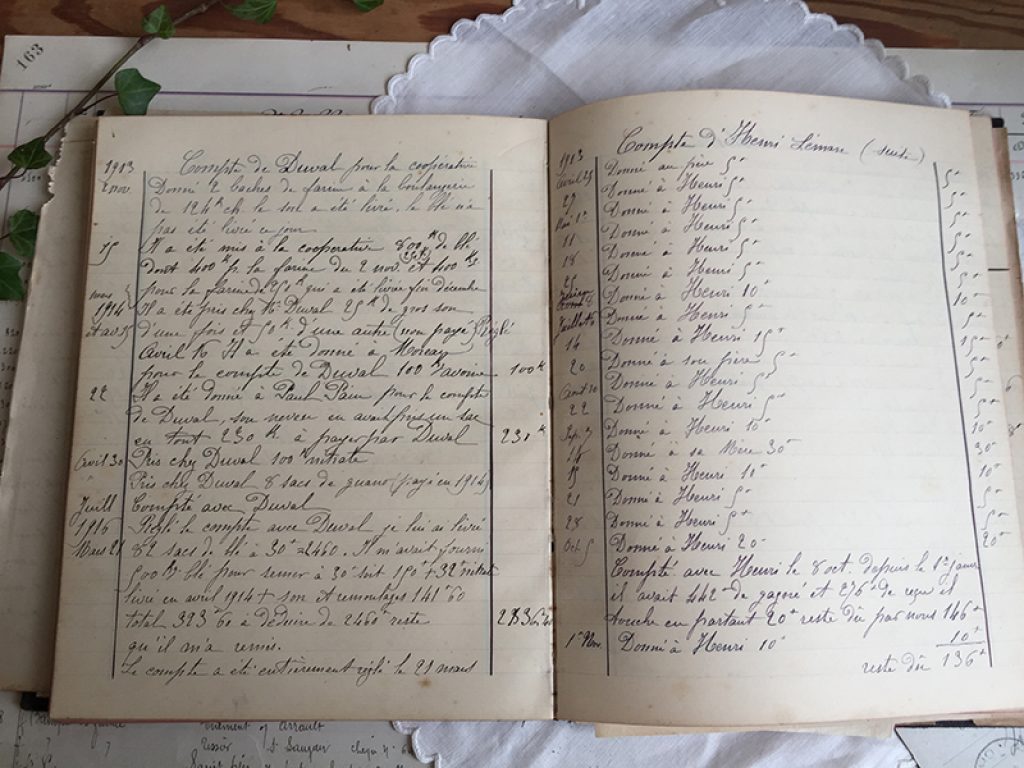 163
1913 Compte de Duval pour la coopérative
2 nov. Donné 2 baches de farine à la boulangerie
de 124 k ch. le son a été livré, le blé n'a
pas été livré ce jour
15 Il a été mis à la coopérative 800 k de blé
dont 400 k p. la farine du 2 nov. et 400 k
pour la farine de 250 k qui a été livrée fin décembre
mars 1914 Il a été pris chez Duval 25 k de gros son
d'une fois et 50 k d'une autre (non payé) Réglé
Avril 16 Il a été donné à Moreau
pour le compte de Duval 100 k avoine 100 k
22 Il a été donné à Paul Pain pour le compte
de Duval, son neveu en avait pris un sac
en tout 230 k à payer par Duval 230 k
Avril 30 Pris chez Duval 100 k nitrate
Pris chez Duval 8 sacs de guano (payé en 1914)
Juill Compté avec Duval
1916 Réglé le compte avec Duval je lui ai livré
Mars 21 82 sacs de blé à 30 = 2460. Il m'avait fourni
500 k blé pour semer à 30 soit 150 + 32 nitrate
livré en avril 1914 + son et remoulages 141 60
total 323 60 à déduire de 2460 reste
qu'il m'a remis.
Le compte a été entièrement réglé le 21 mars
Compte d'Henri Léman (suite)
1913 Donné au père 5 5
Avril 25 Donné à Henri 5 5
27 Donné à Henri 5 5
Mai 1er Donné à Henri 5 5
11 Donné à Henri 5 5
18 Donné à Henri 5 5
25 Donné à Henri 10 10
Donné à Henri 5 5
Juillet 6 Donné à Henri 15 15
14 Donné à son père 5 5
20 Donné à Henri 5 5
Août 10 Donné à Henri 5 5
22 Donné à Henri 10 10
Sep. 7 Donné à sa Mère 30 30
14 Donné à Henri 10 10
15 Donné à Henri 5 5
21 Donné à Henri 5 5
28 Donné à Henri 20 20
Oct 5 Compté avec Henri le 8 oct. depuis le 1er janv
il avait 442 de gagné et 276 de reçu il
touche en partant 20 reste dû par nous 146
1er Nov. Donné à Henri 10 10
reste dû 136